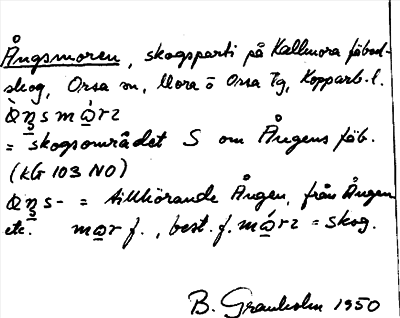 Ångsmoren, skogsparti på Kallmora fäbod-
skog, Orsa sn, Mora o Orsa Tg, Kopparb. l.
= skogsområdet S om Ångens fäb.
(KG 103 NO)
= tillhörande Ången, från Ången
etc. f., best. f. = skog.
B. Granholm 1950